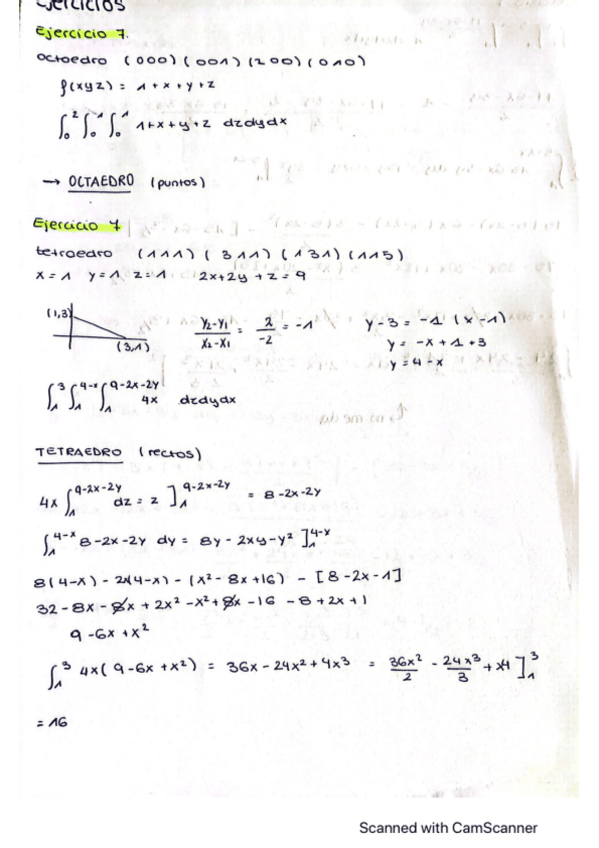 Ejercicios
Ejercicio 7.
octoedro (000) (001) (200) (010)
f(xyz) = 1+x+y+z
∫₀² ∫₀¹ ∫₀¹ 1+x+y+z dzdydx
→ OCTAEDRO (puntos)
Ejercicio 7
tetroedro (111) (311) (131) (115)
x=1 y=1 z=1 2x+2y+z=9
(1,3) (3,1) y₂-y₁/x₂-x₁ = 2/-2 = -1 y-3 = -1 (x-1)
y = -x+1+3
y = 4-x
∫₁³ ∫₁^4-x ∫₁^9-2x-2y 4x dzdydx
TETRAEDRO (rectos)
4x ∫₁^9-2x-2y dz = z ]₁^9-2x-2y = 8-2x-2y
∫₁^4-x 8-2x-2y dy = 8y-2xy-y² ]₁^4-x
8(4-x) - 2x(4-x) - (x²-8x+16) - [8-2x-1]
32-8x-8x+2x²-x²+8x-16-8+2x+1
9-6x+x²
∫₁³ 4x(9-6x+x²) = 36x-24x²+4x³ = 36x²/2 - 24x³/3 + x4 ]₁³
= 16
Scanned with CamScanner